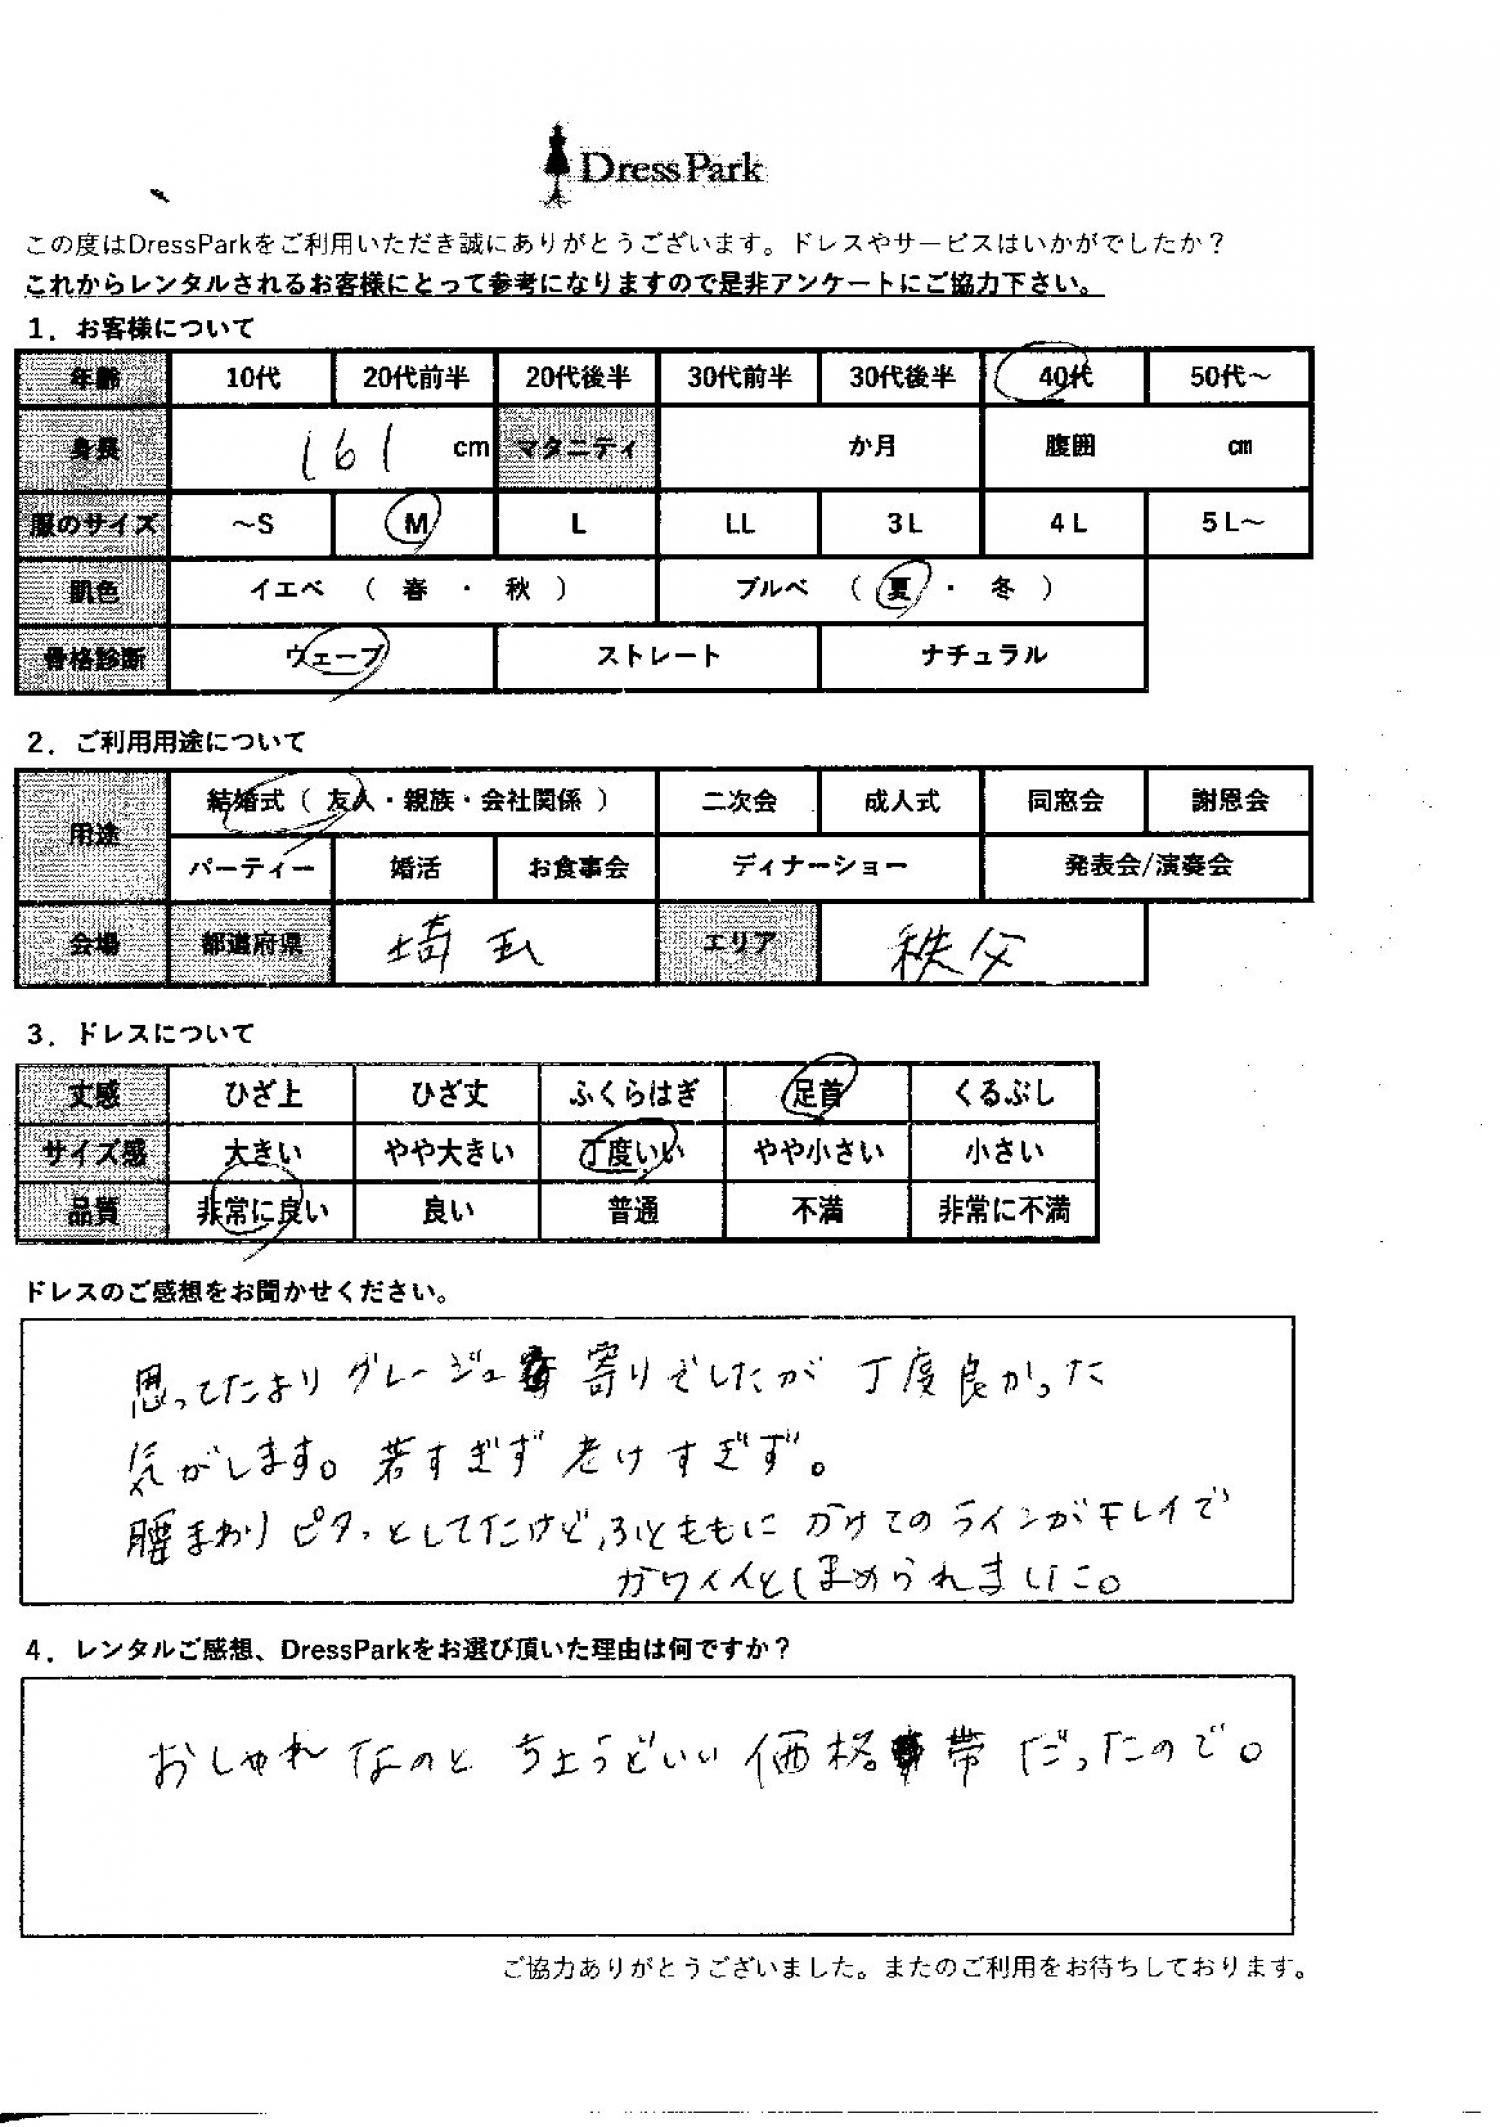 DressPark
この度はDressParkをご利用いただき誠にありがとうございます。ドレスやサービスはいかがでしたか？
これからレンタルされるお客様にとって参考になりますので是非アンケートにご協力下さい。
1．お客様について
年齢 10代 20代前半 20代後半 30代前半 30代後半 40代 50代～
身長 161 cm マタニティ か月 腹囲 cm
服のサイズ ～S M L LL 3L 4L 5L～
肌色 イエベ （ 春 ・ 秋 ） ブルベ （ 夏 ・ 冬 ）
骨格診断 ウェーブ ストレート ナチュラル
2．ご利用用途について
用途 結婚式（ 友人・親族・会社関係 ） 二次会 成人式 同窓会 謝恩会
パーティー 婚活 お食事会 ディナーショー 発表会/演奏会
会場 都道府県 埼玉 エリア 秩父
3．ドレスについて
丈感 ひざ上 ひざ丈 ふくらはぎ 足首 くるぶし
サイズ感 大きい やや大きい 丁度いい やや小さい 小さい
品質 非常に良い 良い 普通 不満 非常に不満
ドレスのご感想をお聞かせください。
思ってたよりグレージュ寄りでしたが丁度良かった
気がします。若すぎず老けすぎず。
腰まわりピタッとしてたけど、ふとももにかけてのラインがキレイで
カワイイとほめられました。
4．レンタルご感想、DressParkをお選び頂いた理由は何ですか？
おしゃれなのとちょうどいい価格帯だったので。
ご協力ありがとうございました。またのご利用をお待ちしております。